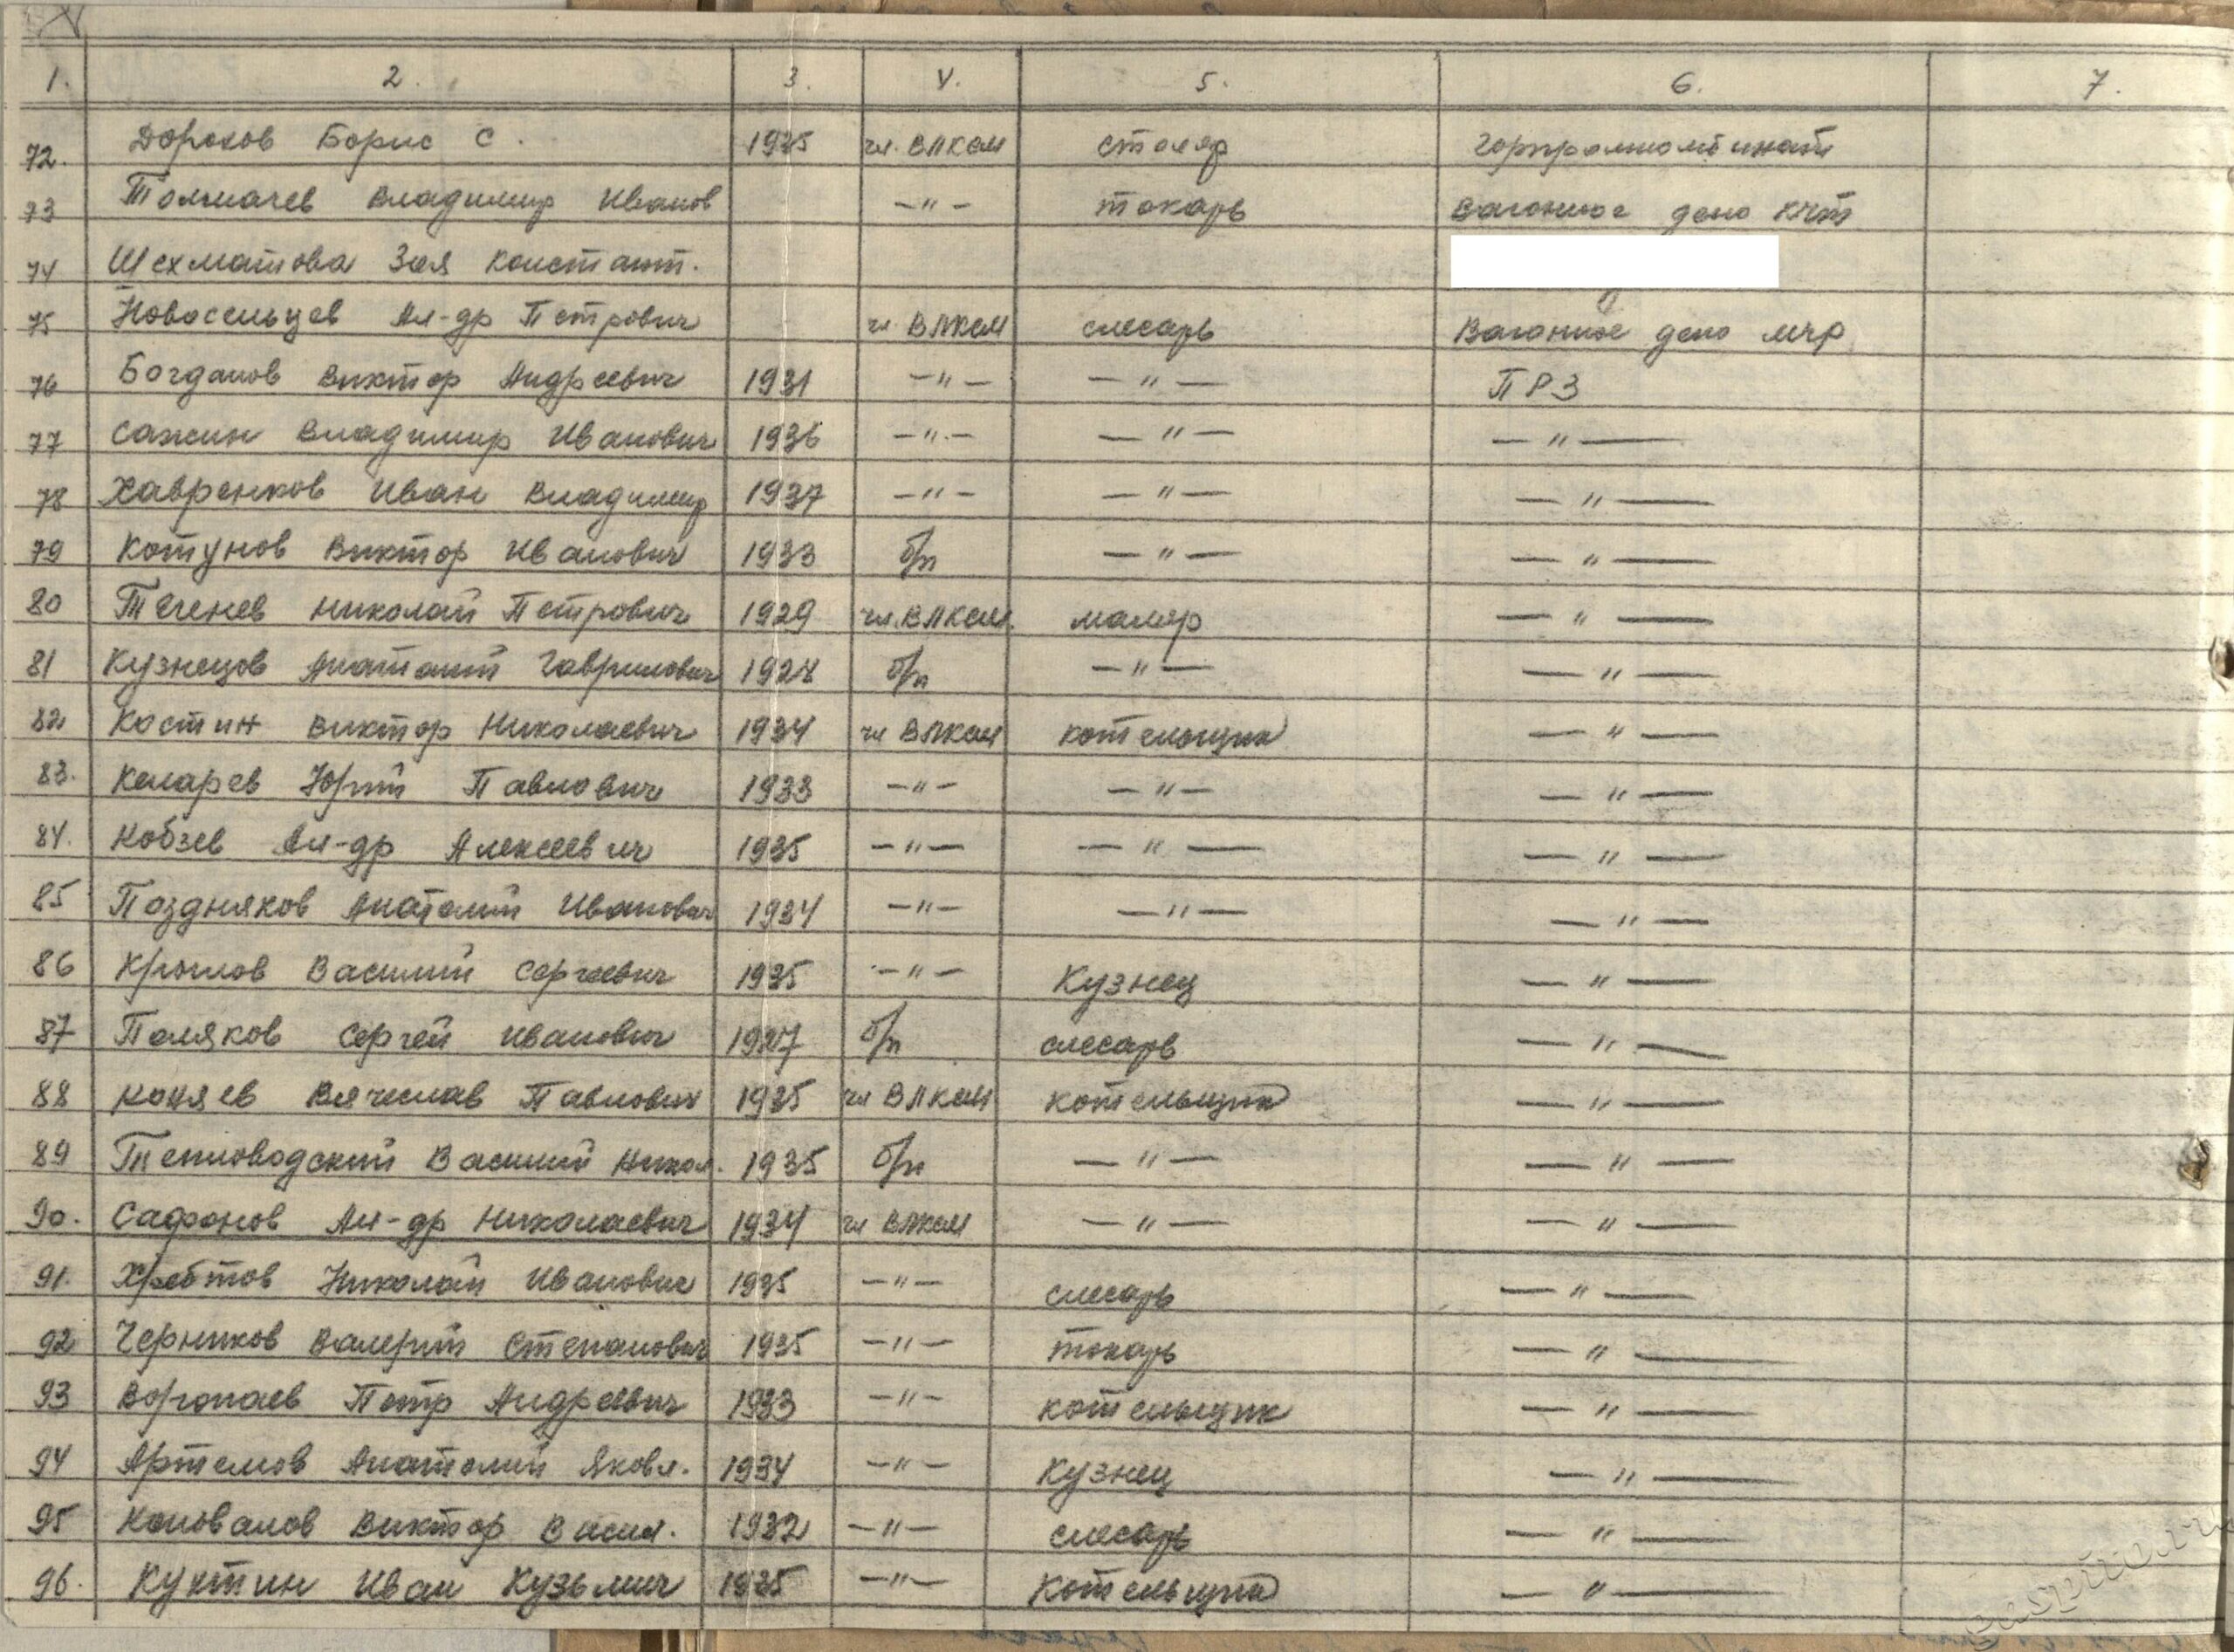 1. 2. 3. 4. 5. 6. 7.
72. Дорохов Борис С. 1935 чл. ВЛКСМ столяр Горпромкомбинат
73 Толмачев Владимир Иванов -"- токарь Вагонное депо
74 Шехматова Зоя Констант.
75 Новосельцев Ал-др Петрович чл. ВЛКСМ слесарь Вагонное депо
76 Богданов Виктор Андреевич 1931 -"- -"- ПРЗ
77 Сажин Владимир Иванович 1936 -"- -"- -"-
78 Хавренков Иван Владимир 1937 -"- -"- -"-
79 Котунов Виктор Иванович 1933 б/п -"- -"-
80 Теченев Николай Петрович 1929 чл. ВЛКСМ маляр -"-
81 Кузнецов Анатолий Гаврилович 1928 б/п -"- -"-
82 Костин Виктор Николаевич 1934 чл ВЛКСМ котельщик -"-
83. Келарев Юрий Павлович 1933 -"- -"- -"-
84. Кобзев Ал-др Алексеевич 1935 -"- -"- -"-
85 Поздняков Анатолий Иванович 1934 -"- -"- -"-
86 Круглов Василий Сергеевич 1935 -"- Кузнец -"-
87 Поляков Сергей Иванович 1927 б/п слесарь -"-
88 Коняев Вячеслав Павлович 1935 чл ВЛКСМ котельщик -"-
89 Тепловодский Василий Никол. 1935 б/п -"- -"-
90. Сафонов Ал-др Николаевич 1934 чл ВЛКСМ -"- -"-
91. Хребтов Николай Иванович 1935 -"- слесарь -"-
92 Черников Валерий Степанович 1935 -"- токарь -"-
93 Воропаев Петр Андреевич 1933 -"- котельщик -"-
94 Артемов Анатолий Яковл. 1934 -"- Кузнец -"-
95 Коновалов Виктор Васил. 1932 -"- слесарь -"-
96. Куктин Иван Кузьмич 1935 -"- Котельщик -"-
gaspito.ru